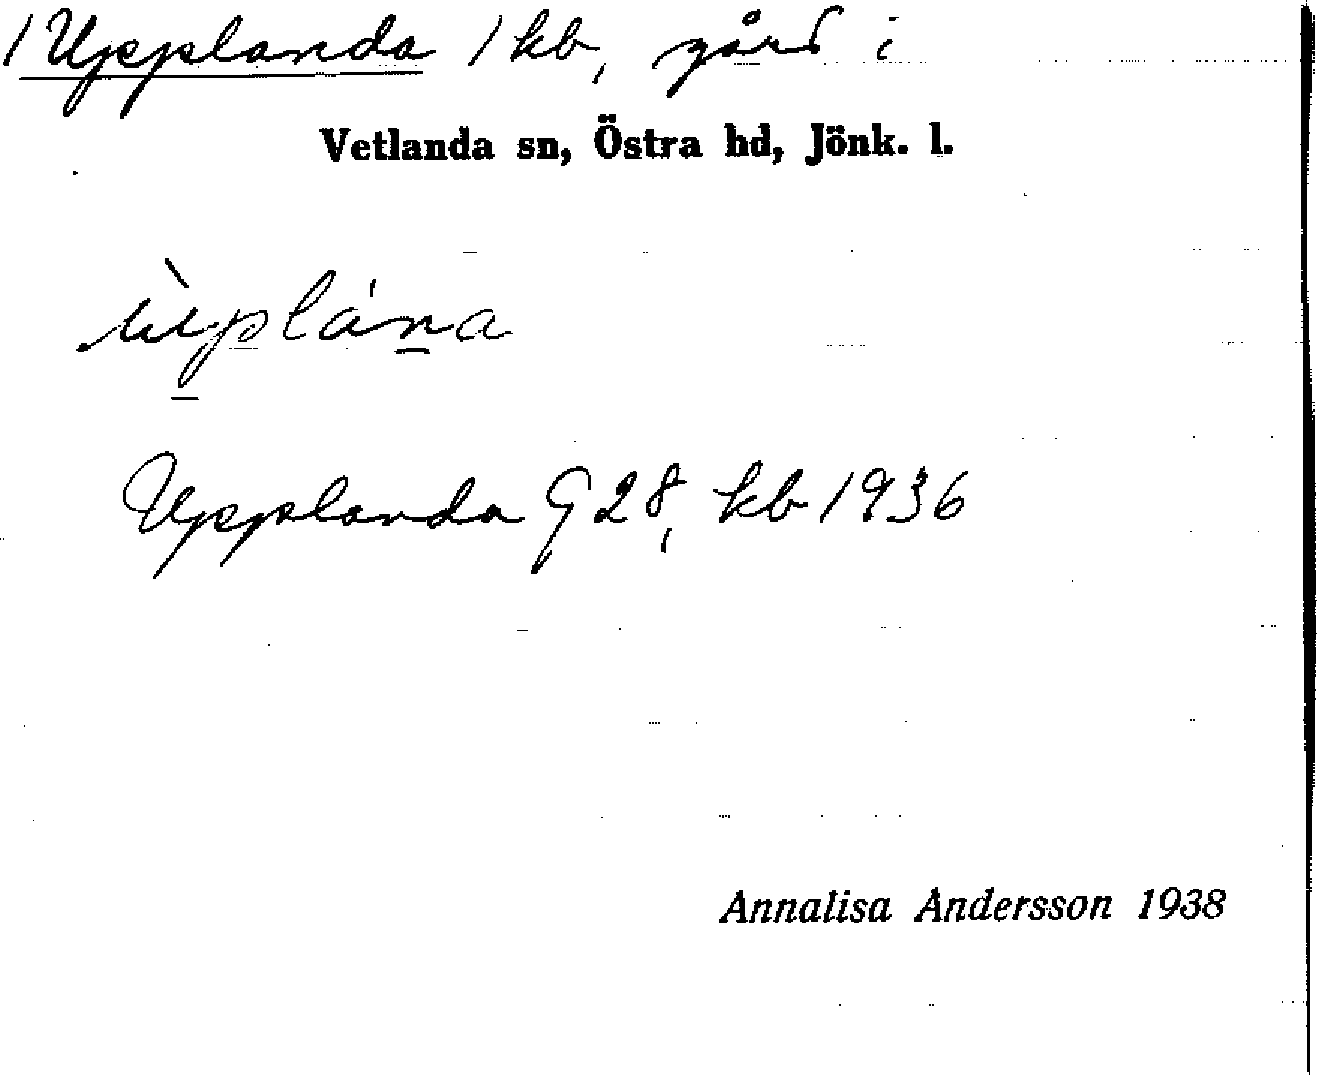 /Upplanda / kb, gård i
Vetlanda sn, Östra hd, Jönk. l.
ùplána
Upplanda G 28, kb 1936
Annalisa Andersson 1938